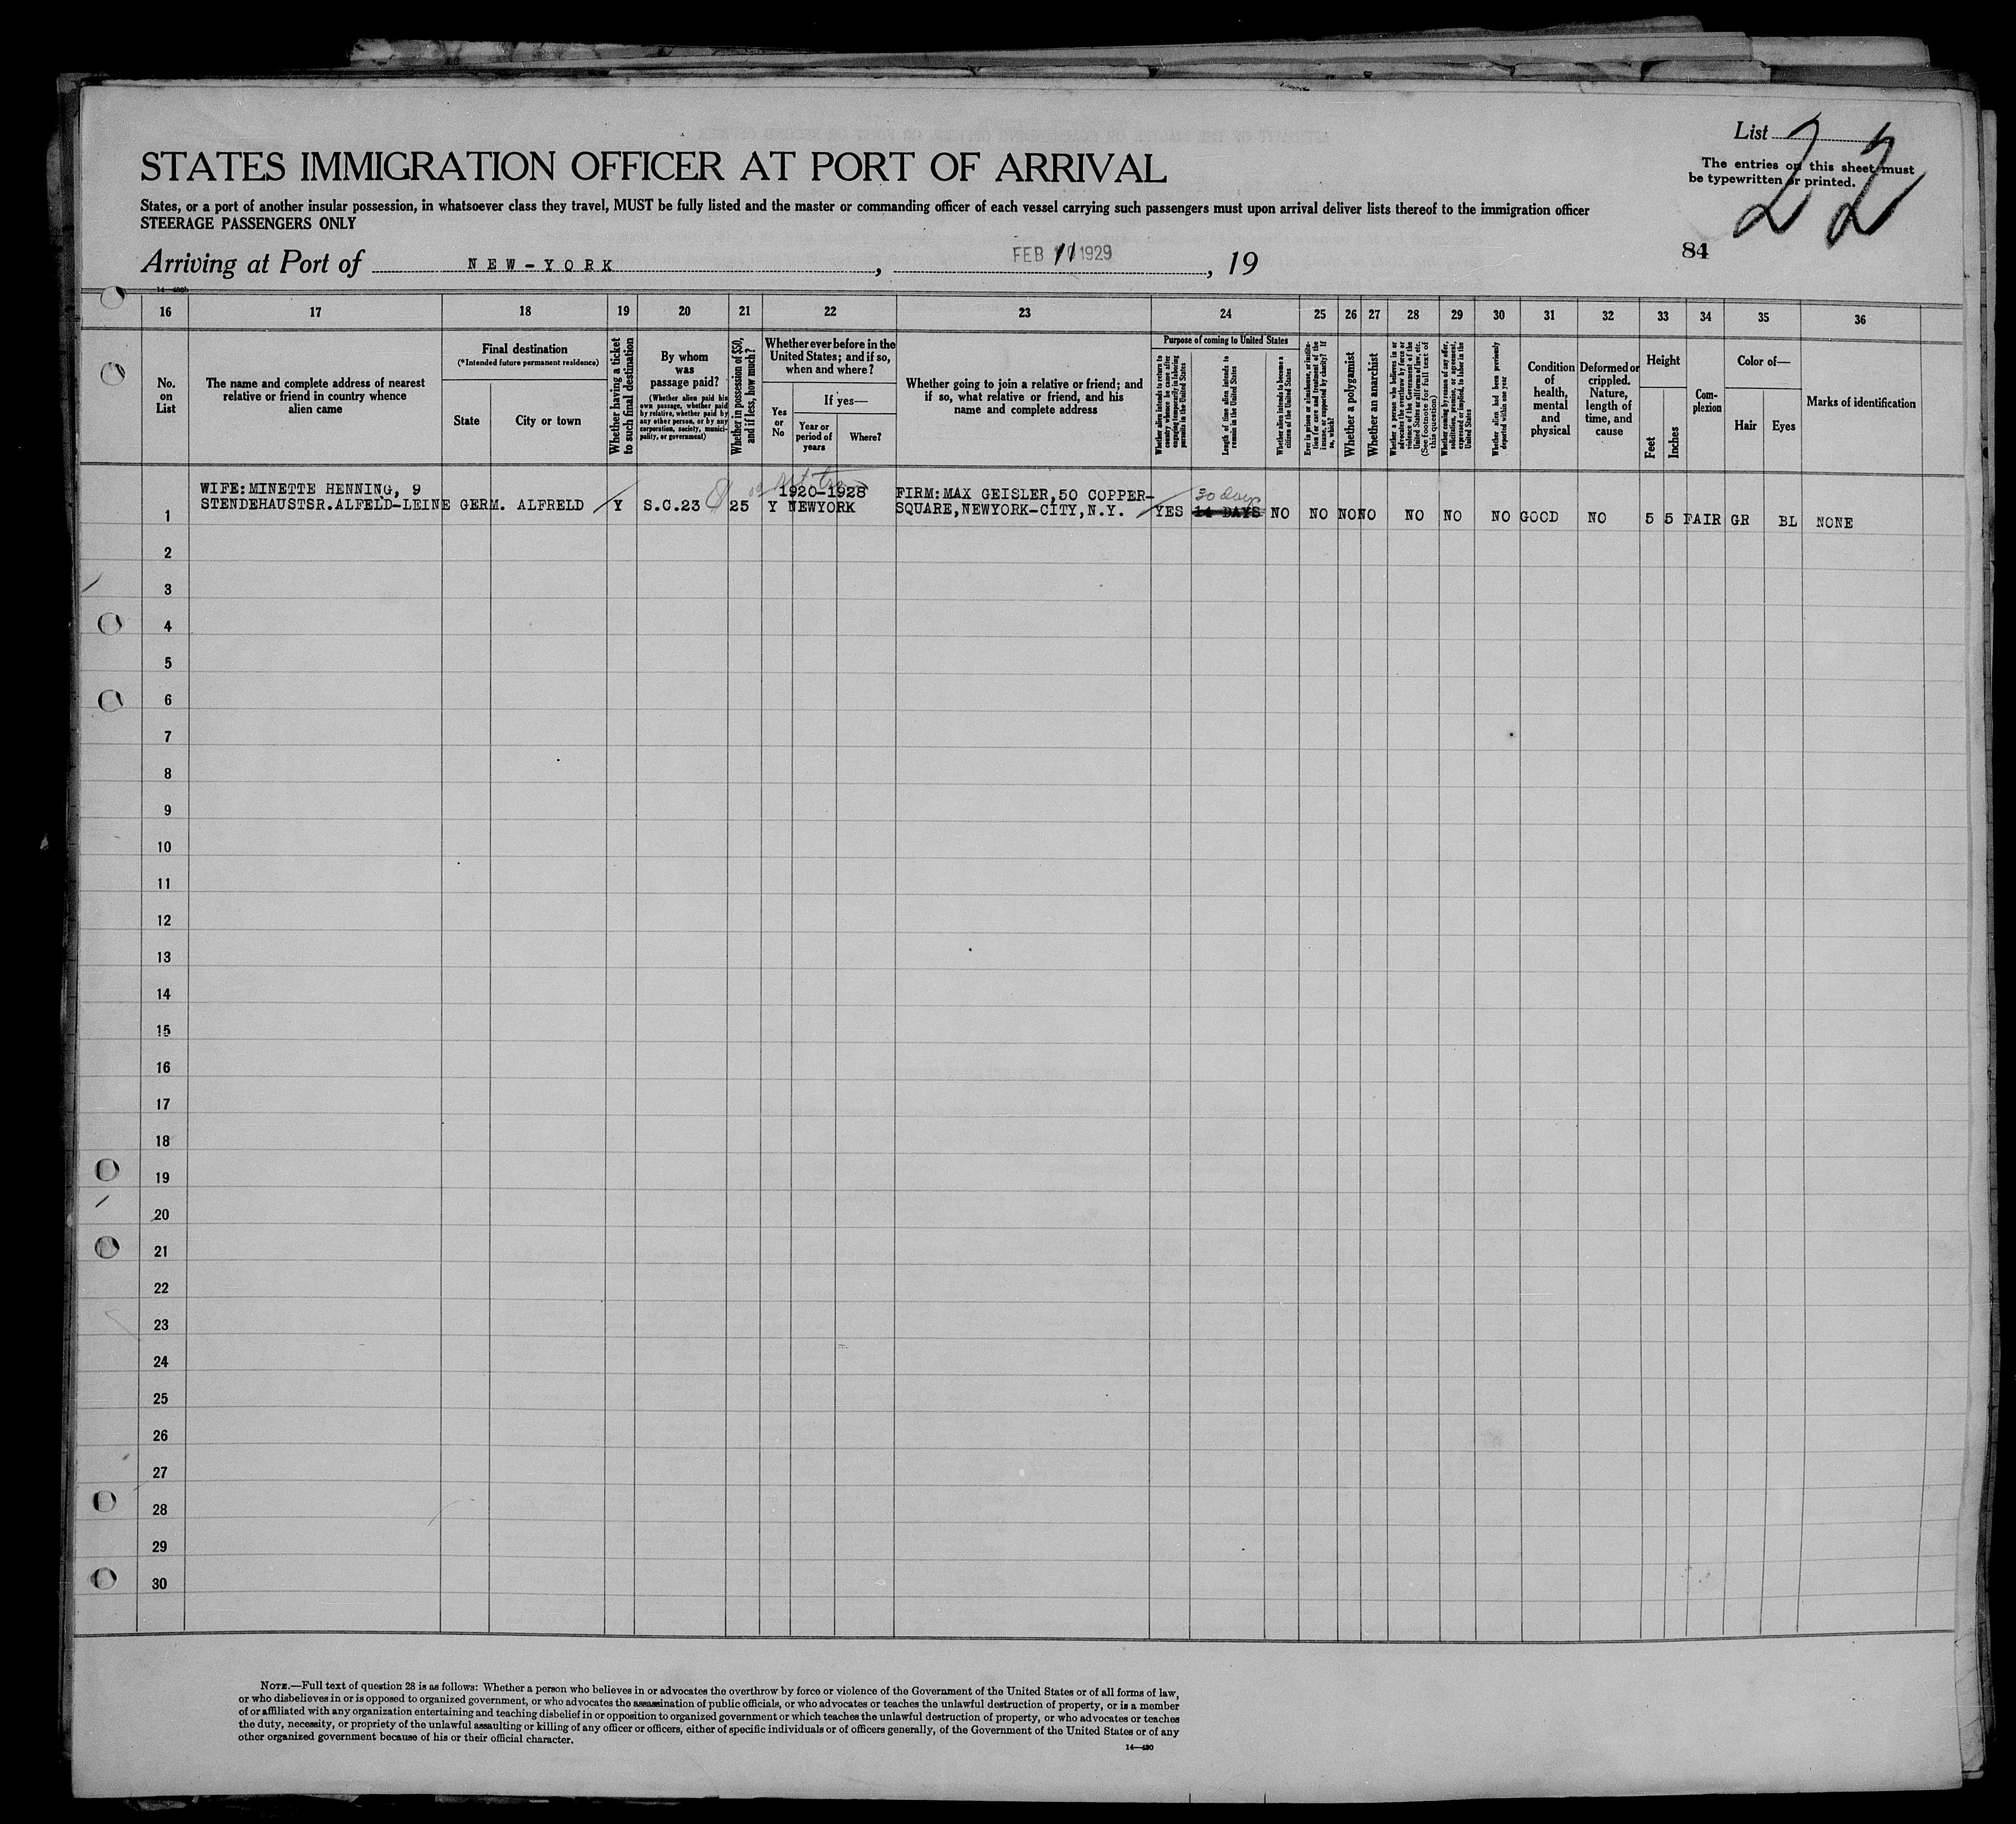 List 22
The entries on this sheet must
be typewritten or printed.
STATES IMMIGRATION OFFICER AT PORT OF ARRIVAL
States, or a port of another insular possession, in whatsoever class they travel, MUST be fully listed and the master or commanding officer of each vessel carrying such passengers must upon arrival deliver lists thereof to the immigration officer
STEERAGE PASSENGERS ONLY
84
Arriving at Port of NEW-YORK, FEB 11 1929, 19
16 17 18 19 20 21 22 23 24 25 26 27 28 29 30 31 32 33 34 35 36
No.
on
List
The name and complete address of nearest
relative or friend in country whence
alien came
Final destination
(*Intended future permanent residence)
State
City or town
Whether having a ticket
to such final destination
By whom
was
passage paid?
(Whether alien paid his
own passage, whether paid
by relative, whether paid by
any other person, or by any
corporation, society, munici-
pality, or government)
Whether in possession of $50,
and if less, how much?
Whether ever before in the
United States; and if so,
when and where?
Yes
or
No
If yes—
Year or
period of
years
Where?
Whether going to join a relative or friend; and
if so, what relative or friend, and his
name and complete address
Purpose of coming to United States
Whether alien intends to return to
country whence he came after
engaging temporarily in laboring
pursuits in the United States
Length of time alien intends to
remain in the United States
Whether alien intends to become a
citizen of the United States
Ever in prison or almshouse, or institu-
tion for care and treatment of the
insane, or supported by charity? If
so, which?
Whether a polygamist
Whether an anarchist
Whether a person who believes in or
advocates the overthrow by force or
violence of the Government of the
United States or all forms of law, etc.
(See footnote for full text of
this question)
Whether coming by reason of any offer,
solicitation, promise, or agreement,
expressed or implied, to labor in the
United States
Whether alien had been previously
deported within one year
Condition
of
health,
mental
and
physical
Deformed or
crippled.
Nature,
length of
time, and
cause
Height
Feet
Inches
Com-
plexion
Color of—
Hair
Eyes
Marks of identification
WIFE: MINETTE HENNING, 9 1920-1928 FIRM: MAX GEISLER, 50 COPPER- 30 days
1 STENDEHAUSTSR. ALFELD-LEINE GERM. ALFRELD Y S.C.23 25 Y NEWYORK SQUARE, NEWYORK-CITY, N.Y. YES 14 DAYS NO NO NO NO NO NO NO GOOD NO 5 5 FAIR GR BL NONE
2
3
4
5
6
7
8
9
10
11
12
13
14
15
16
17
18
19
20
21
22
23
24
25
26
27
28
29
30
NOTE.—Full text of question 28 is as follows: Whether a person who believes in or advocates the overthrow by force or violence of the Government of the United States or of all forms of law,
or who disbelieves in or is opposed to organized government, or who advocates the assassination of public officials, or who advocates or teaches the unlawful destruction of property, or is a member
of or affiliated with any organization entertaining and teaching disbelief in or opposition to organized government or which teaches the unlawful destruction of property, or who advocates or teaches
the duty, necessity, or propriety of the unlawful assaulting or killing of any officer or officers, either of specific individuals or of officers generally, of the Government of the United States or of any
other organized government because of his or their official character.
14—430